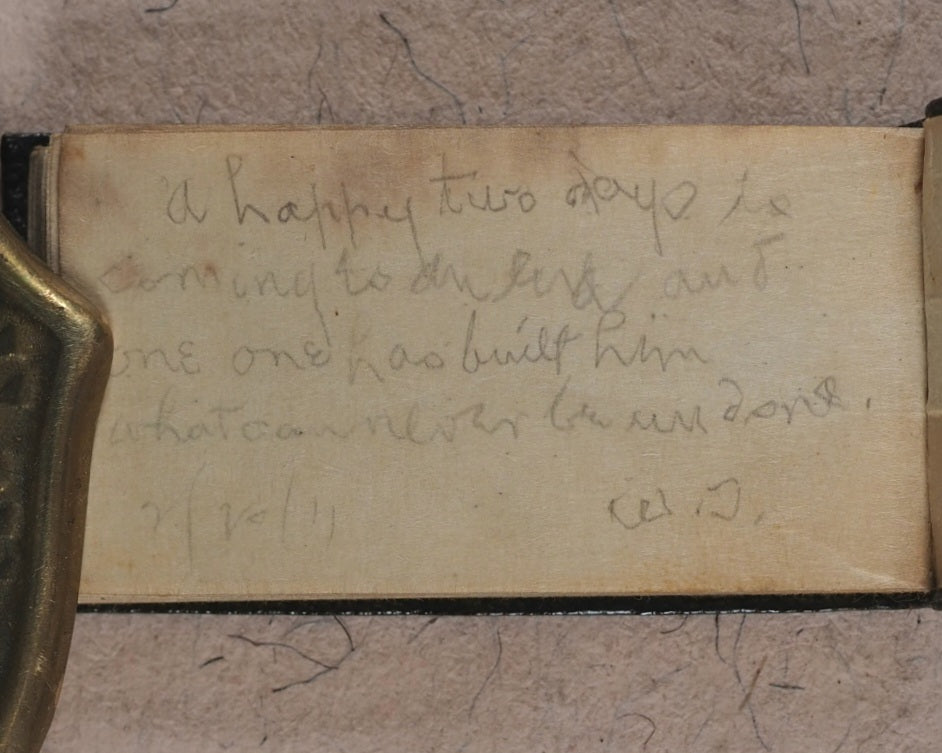 A happy two days is
coming to an end and
one one has built him
what can never be undone.
W.D.